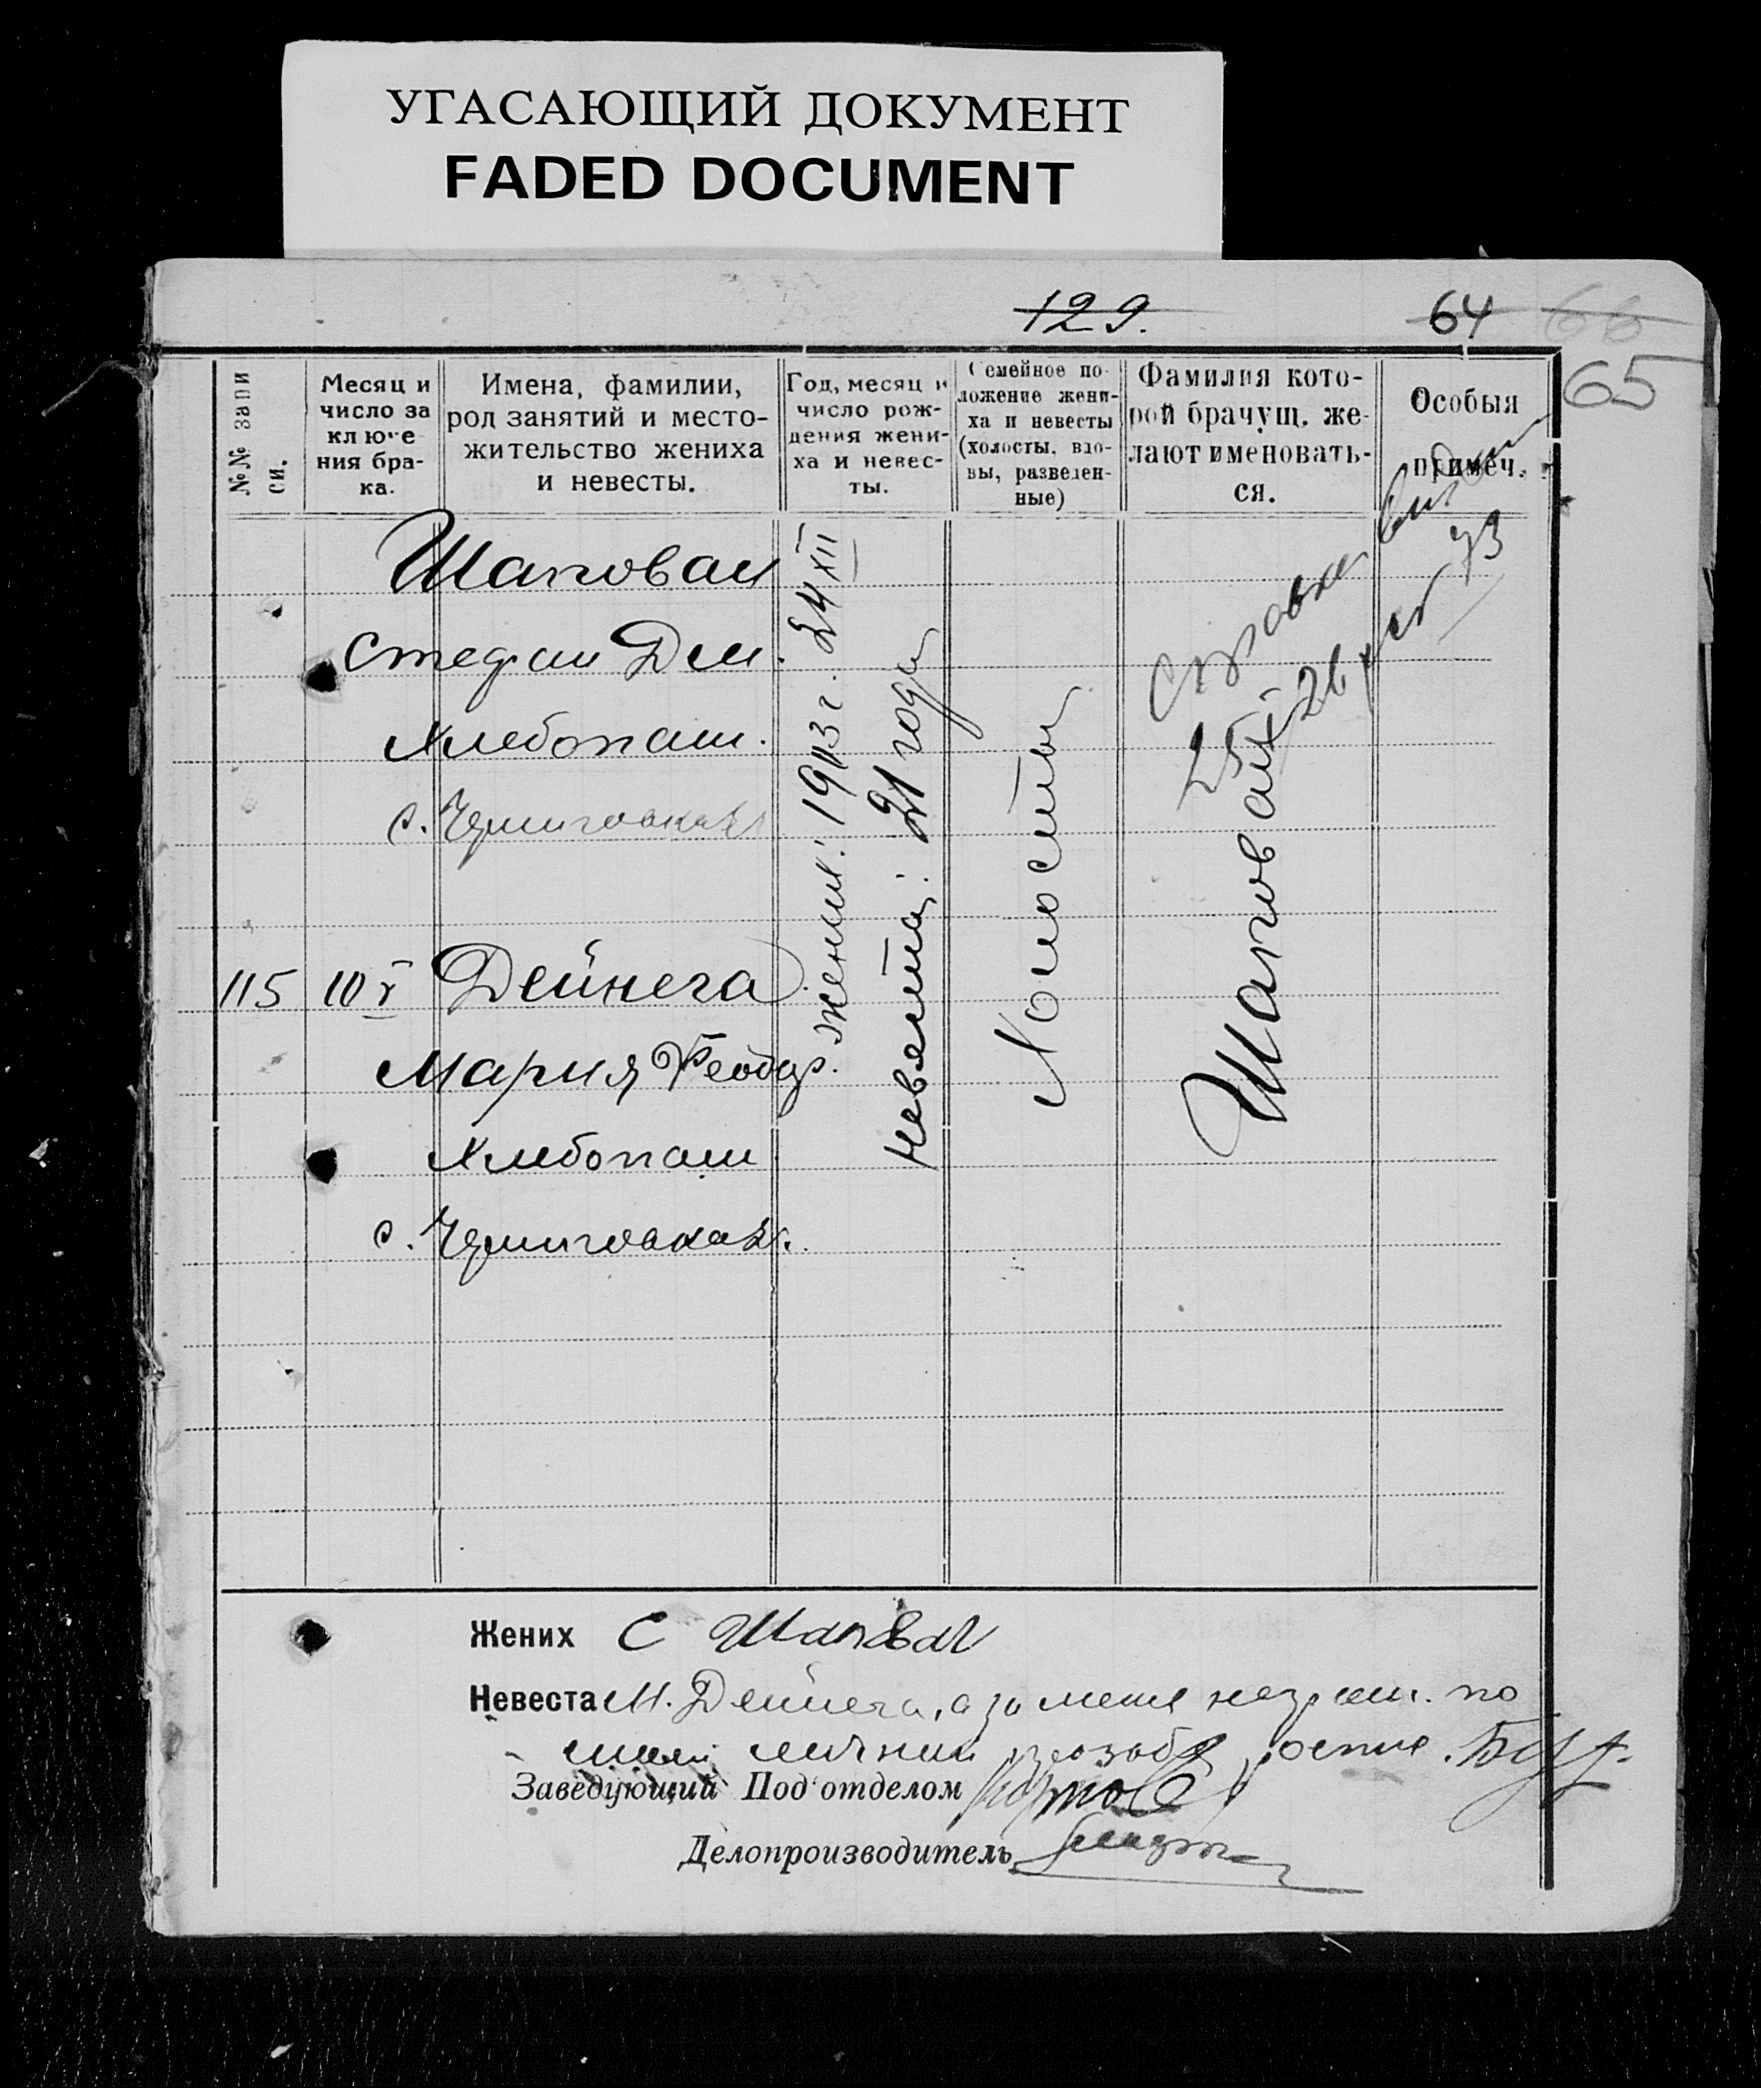 УГАСАЮЩИЙ ДОКУМЕНТ
FADED DOCUMENT
129.
64 66
65
№№ запи
си.
Месяц и
число за
ключе
ния бра-
ка.
Имена, фамилии,
род занятий и место-
жительство жениха
и невесты.
Год, месяц и
число рож-
дения жени-
ха и невес-
ты.
Семейное по-
ложение жени-
ха и невесты
(холосты, вдо-
вы, разведен-
ные)
Фамилия кото-
рой брачущ. же-
лают именовать-
ся.
Особыя
примеч.
Шаповал
Стефан Дем.
Хлебопаш.
с. Черниговка
115 10 V Дейнега
Мария Феодор.
Хлебопаш
с. Черниговка
жених: 1913 г. 24 XII
невеста: 21 года
Холосты
Шаповал
Справка
26 73
Жених С Шаповал
Невеста М. Дейнега, а за меня неграм. по
личной прозьбе роспис.
Заведующий Под'отделом
Делопроизводитель